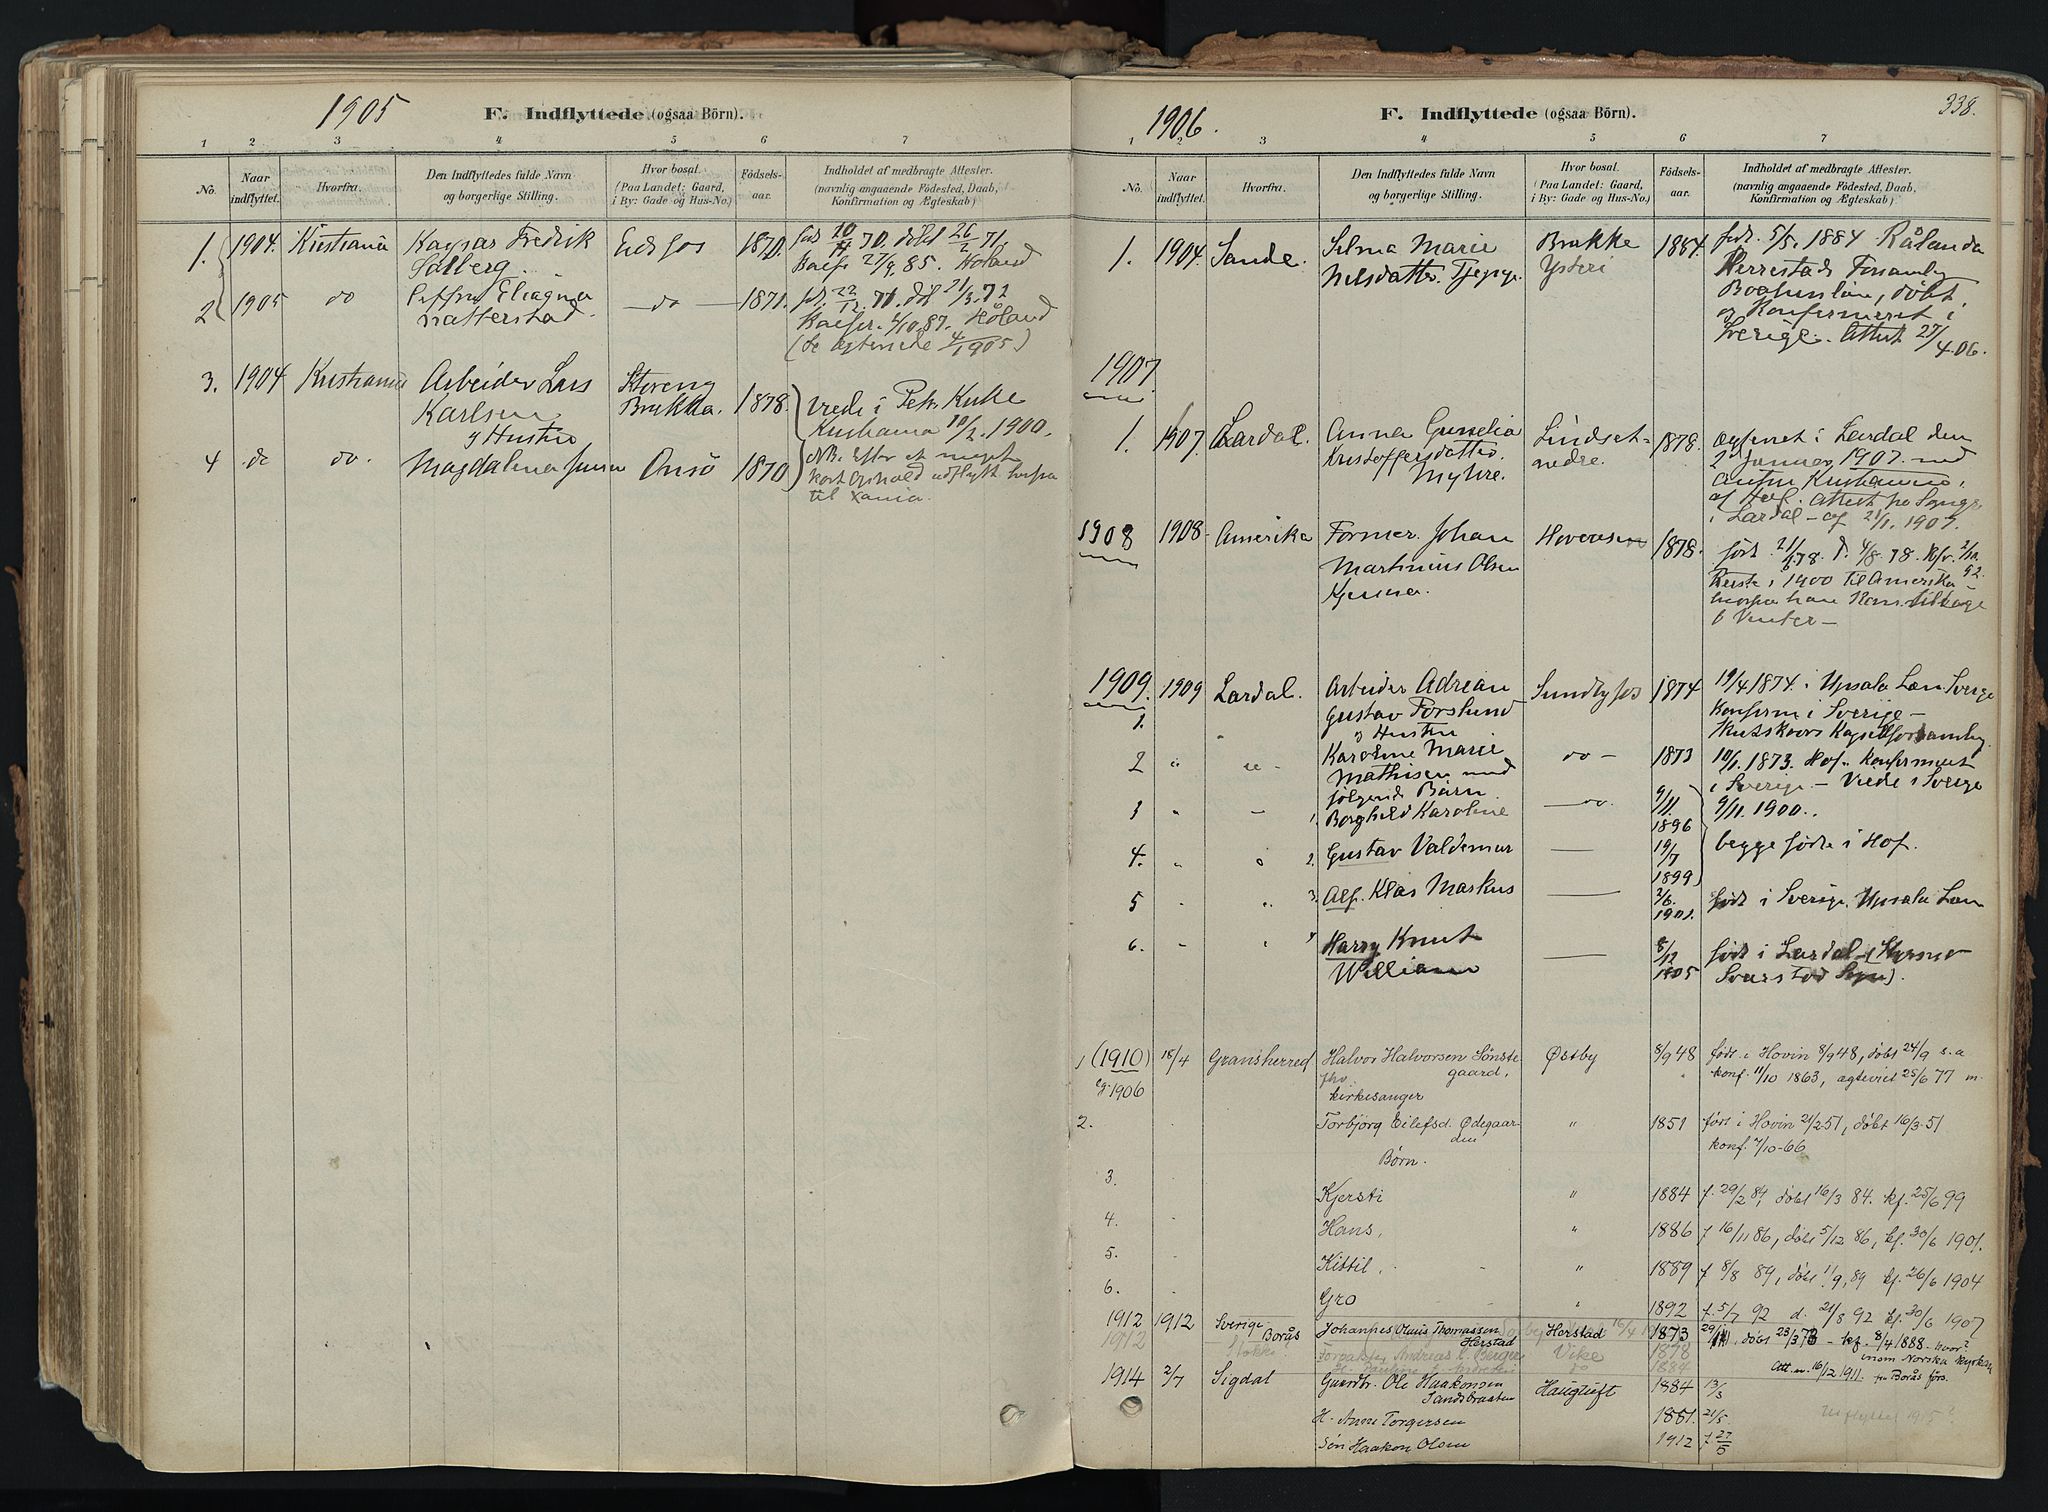 1905
F. Indflyttede (ogsaa Börn).
1 2 3 4 5 6 7
No.
Naar
indflyttet.
Hvorfra.
Den Indflyttedes fulde Navn
og borgerlige Stilling.
Hvor bosat.
(Paa Landet: Gaard,
i By: Gade og Hus-No.)
Födsels-
aar.
Indholdet af medbragte Attester.
(navnlig angaaende Födested, Daab,
Konfirmation og Ægteskab)
1. 1904. Kristiania Kaspar Fredrik Eidsfos 1870.
Solberg.
2 1905 do Eliagna do 1871.
Natterstad.
(de ægteviede 4/ 1905)
3. 1904 Kristiania Arbeider Lars Storeng
Karlsen Brukka. 1878. viede i Petr. Kirke
g Hustru Kristiania 10/2. 1900.
4 do do. Magdalena Jensen Onsö 1870
NB. Efter et meget
kort Ophold udflytt herfra
til Xania.
1906.
F. Indflyttede (ogsaa Börn).
338.
1 2 3 4 5 6 7
No.
Naar
indflyttet.
Hvorfra.
Den Indflyttedes fulde Navn
og borgerlige Stilling.
Hvor bosat.
(Paa Landet: Gaard,
i By: Gade og Hus-No.)
Födsels-
aar.
Indholdet af medbragte Attester.
(navnlig angaaende Födested, Daab,
Konfirmation og Ægteskab)
1. 1904. Sande. Selma Marie Brukke 1884. født. 5/5. 1884
Nilsdatter. Ysteri Herrestads Forsamlg
Boahuslän, døbt.
og Konfirmeret i
Sverige. Attest 27/4.06.
1907.
1. 1907. Lardal. Anna Gunelia Lindset- 1878. ægteviet i Lardal den
Kristoffersdatter. nedre. 2 Januar 1907. med
Myhre. Kristiansen,
af Hof. Attest fra Sognepr
i Lardal - af 21/1. 1907.
1908 1908 Amerika Farmer. Johan Hovaasen 1878. født. 21/6 78. d. 4/8. 78. Kfr. 2/10.
Martinius Olsen 92.
Reiste i 1900 til Amerika -
hvorfra han kom tilbage
i Vinter -
1909. 1909 Lardal. Arbeider Adrian Sundbyfos 1874 19/4 1874. i Upsala Læn. Sverige
1. Gustav Forslund Konfirm i Sverige -
g Hustru Kapelforsamlg.
2 Karoline Marie do - 1873 10/1. 1873. Hof. Konfirmeret
Mathisen med i Sverige - Viede i Sverige
følgende Børn. 9/11. 1900.
3 1. Borghild Karoline do. 9/11. 1896
4. 2. Gustav Valdemar 19/7 1899 begge fødte i Hof.
5 3. Alf. Klas Markus 2/6. 1901. født i Sverige. Upsala Læn
6. 4 Harry Knut 8/12 1905 født i Lardal
William Svarstad Sogn).
1 (1910) 18/4 Gransherred Halvor Halvorsen Sönste- Østby 8/9 48 født i Hovin 8/9 48, døbt 24/9 s.a
fhv. gaard, konf. 11/10 1863, ægteviet 25/6 77 m.
1906 kirkesanger
2. Torbjörg Eilefsd. Ødegaar- " 1851 født i Hovin 21/2 51, døbt 16/3-51
den konf. 7/10-66
Børn.
3. Kjersti " 1884 f. 29/2 84, døbt 16/3 84. kf. 25/6 99
4. Hans, " 1886 f 16/11 86, døbt 5/12 86, kf. 30/6 1901.
5. Kittil, " 1889 f 8/8 89, døbt 1/9, 89 kf. 26/6 1904
6. Gro " 1892 f. 5/7 92 d. 21/8 92 kf. 30/6 1907
1912 1912 Sverige Johannes Olaus Thomassen Herstad 1873 døbt 23/3 73 - kf. 8/4 1888 - hvor?
Borås Herstad inom Norska kyrkan
1912 Andreas Berger Vike 1878 Att. m. 16/12 1911. fr. Borås förs.
do 1884
1914 2/7 Sigdal Gaardbr. Ole Haakonsen Haugtuft 1884 13/3
Sandsbraaten
H. Anne Torgersen 1881. 21/5 Utflyttet 1915?
Søn Haakon Olsen 1912 f. 27/5